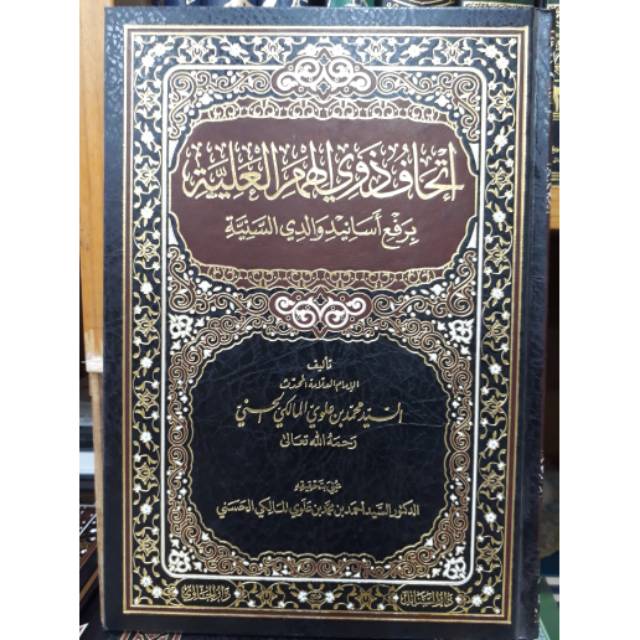 إتحاف ذوي الهمم العلية
برفع أسانيد والدي السنية
تأليف
الإمام العلامة المحدث
السيد محمد بن علوي المالكي الحسني
رحمه الله تعالى
عني بتحقيقه
الدكتور السيد أحمد بن محمد بن علوي المالكي الحسني